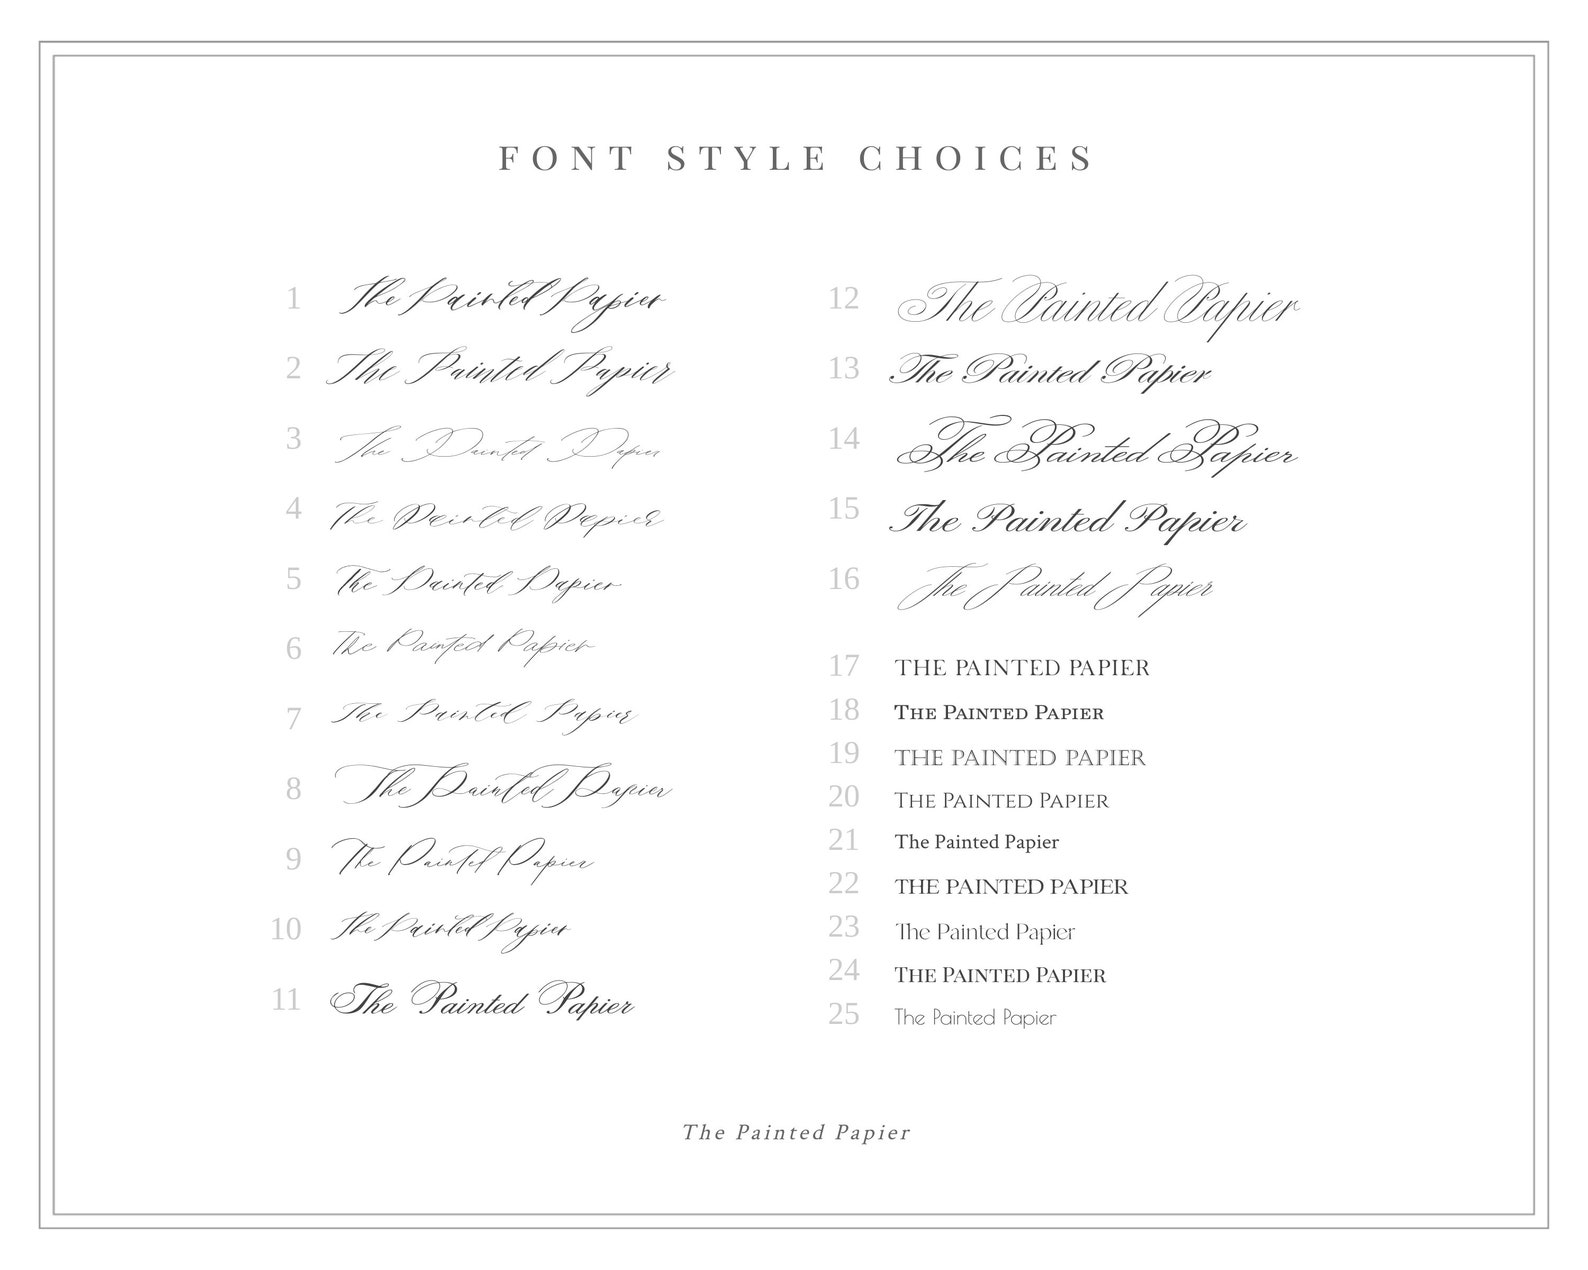 FONT STYLE CHOICES
1 The Painted Papier
2 The Painted Papier
3 The Painted Papier
4 The Painted Papier
5 The Painted Papier
6 The Painted Papier
7 The Painted Papier
8 The Painted Papier
9 The Painted Papier
10 The Painted Papier
11 The Painted Papier
12 The Painted Papier
13 The Painted Papier
14 The Painted Papier
15 The Painted Papier
16 The Painted Papier
17 THE PAINTED PAPIER
18 THE PAINTED PAPIER
19 THE PAINTED PAPIER
20 THE PAINTED PAPIER
21 The Painted Papier
22 THE PAINTED PAPIER
23 The Painted Papier
24 THE PAINTED PAPIER
25 The Painted Papier
The Painted Papier